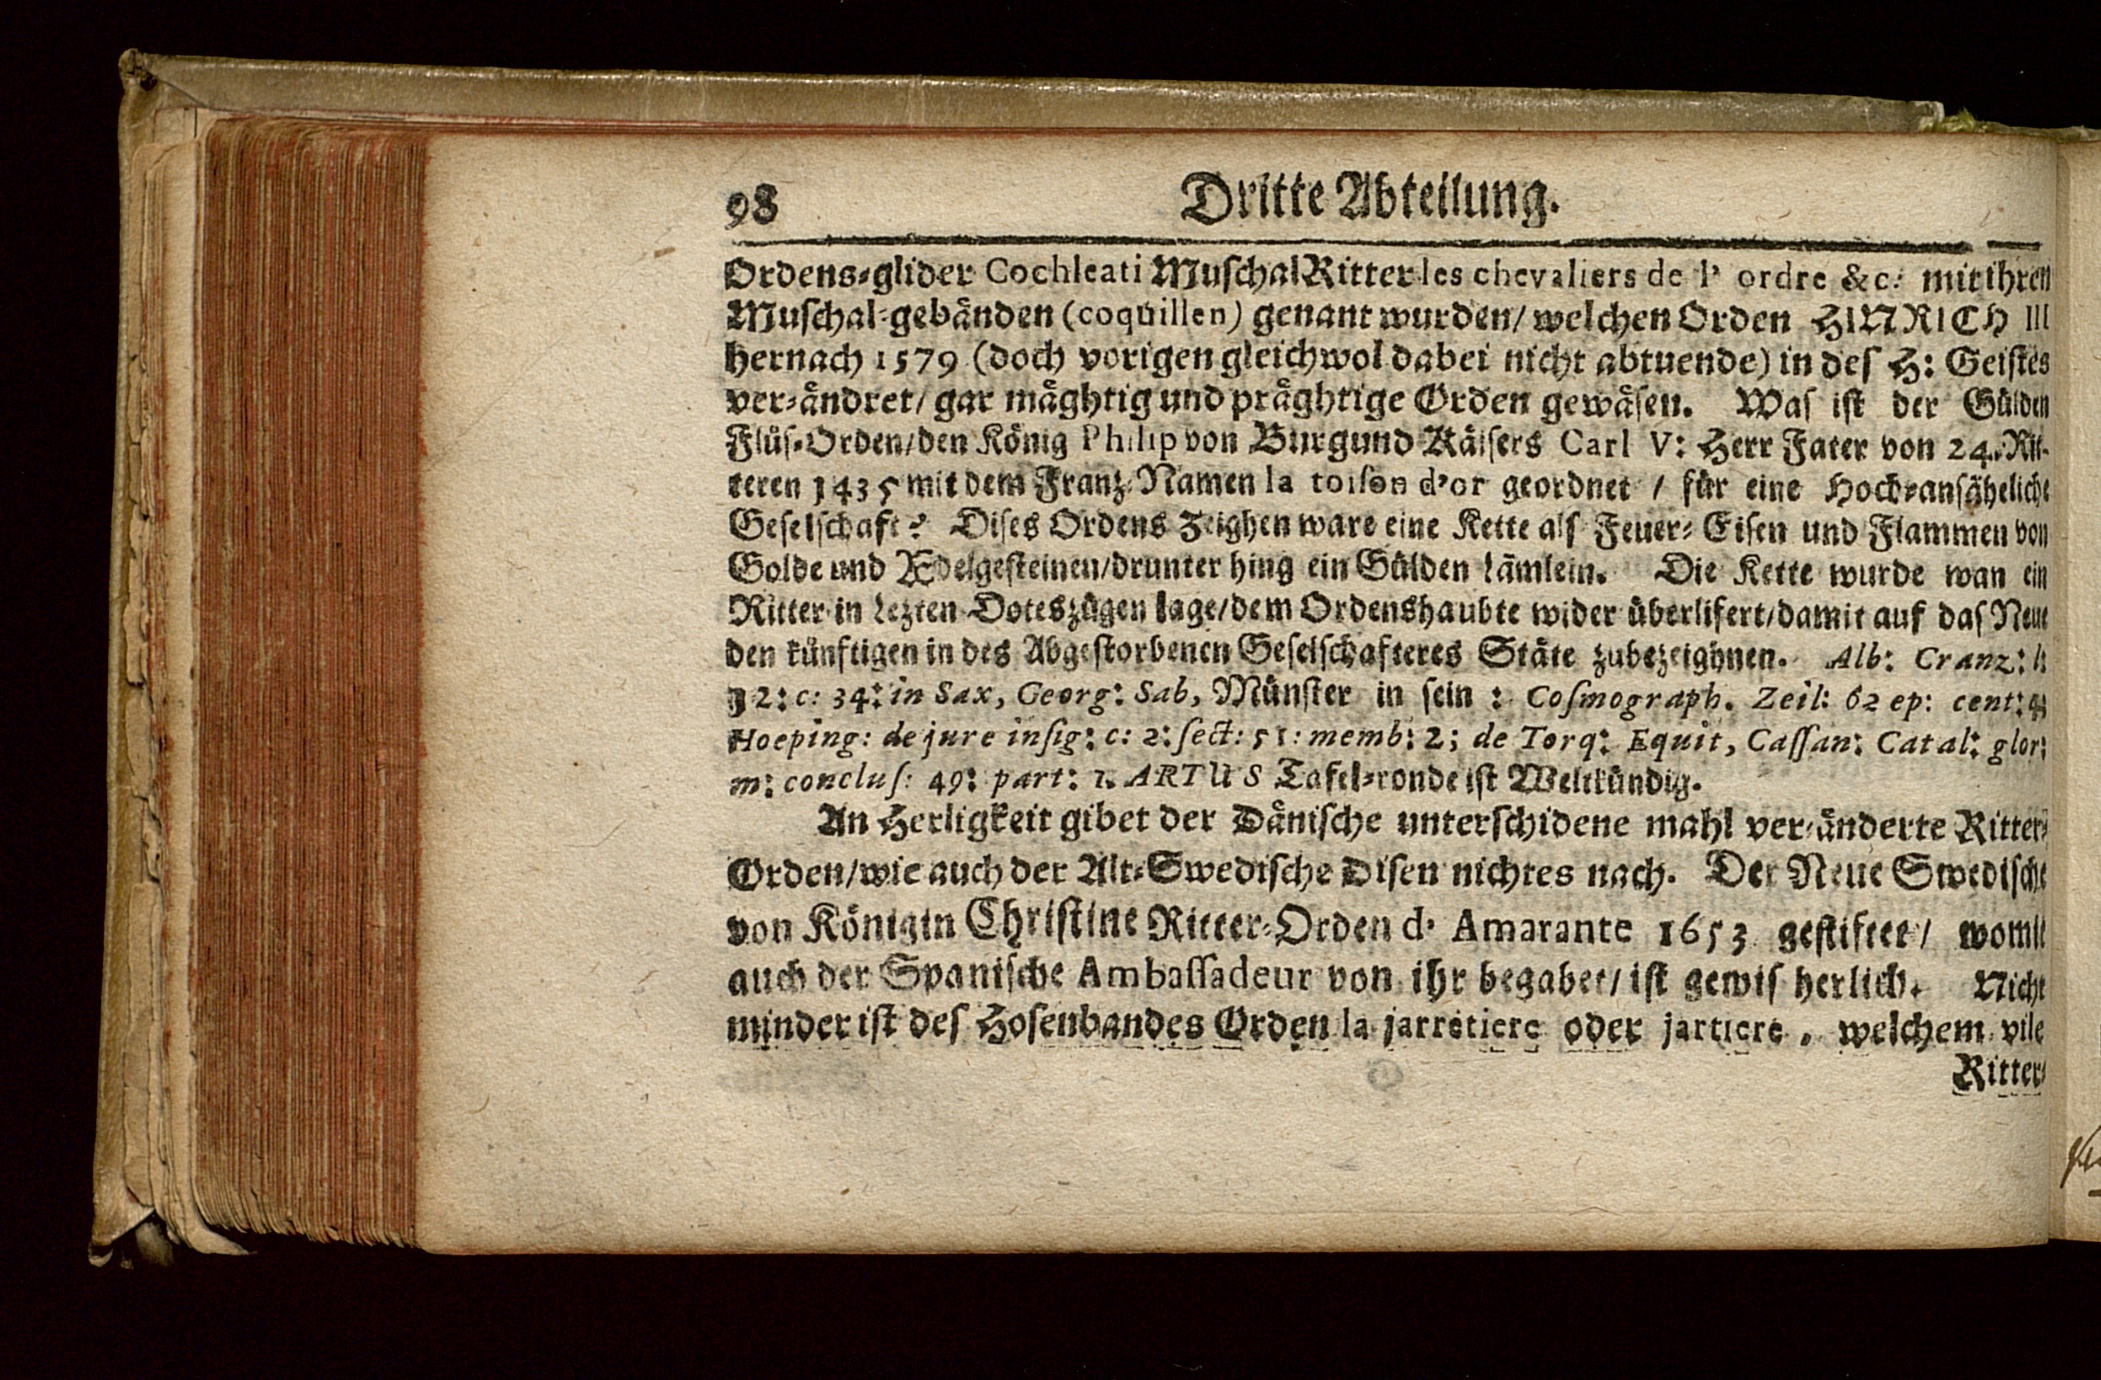 98 Dritte Abteilung.
Ordens-glider Cochleati MuschalRitter les chevaliers de l' ordre &c: mit ihren
Muschal-gebänden (coquillen) genant wurden/ welchen Orden HINRICH III
hernach 1579 (doch vorigen gleichwol dabei nicht abtuende) in des H: Geistes
ver-ändret/ gar mäghtig und präghtige Orden gewäsen. Was ist der Gülden
Flüs-Orden/ den König Philip von Burgund Käisers Carl V: Herr Fater von 24. Rit-
teren 1435 mit dem Franz: Namen la toison d'or geordnet / für eine Hoch-ansäheliche
Geselschaft? Dises Ordens Zeighen ware eine Kette als Feuer-Eisen und Flammen von
Golde und Ædelgesteinen/ drunter hing ein Gülden Lämlein. Die Kette wurde wan ein
Ritter in Lezten Doteszügen lage/ dem Ordenshaubte wider überlifert/ damit auf das Neue
den künftigen in des Abgestorbenen Geselschafteres Stäte zubezeighnen. Alb: Cranz: l:
12: c: 34: in Sax, Georg: Sab, Münster in sein : Cosmograph. Zeil: 62 ep: cent:
Hoeping: de jure insig: c: 2: sect: 51: memb: 2; de Torq: Equit, Cassan: Catal: glor:
m: conclus: 49: part: 1. ARTUS Tafel-ronde ist Weltkündig.
An Herligkeit gibet der Dänische unterschidene mahl ver-änderte Ritter-
Orden/ wie auch der Alt-Swedische Disen nichtes nach. Der Neue Swedische
von Königin Christine Ritter-Orden d' Amarante 1653 gestiftet/ womit
auch der Spanische Ambassadeur von ihr begabet/ ist gewis herlich. Nicht
minder ist des Hosenbandes Orden la jarretiere oder jartiere, welchem vile
Ritter-